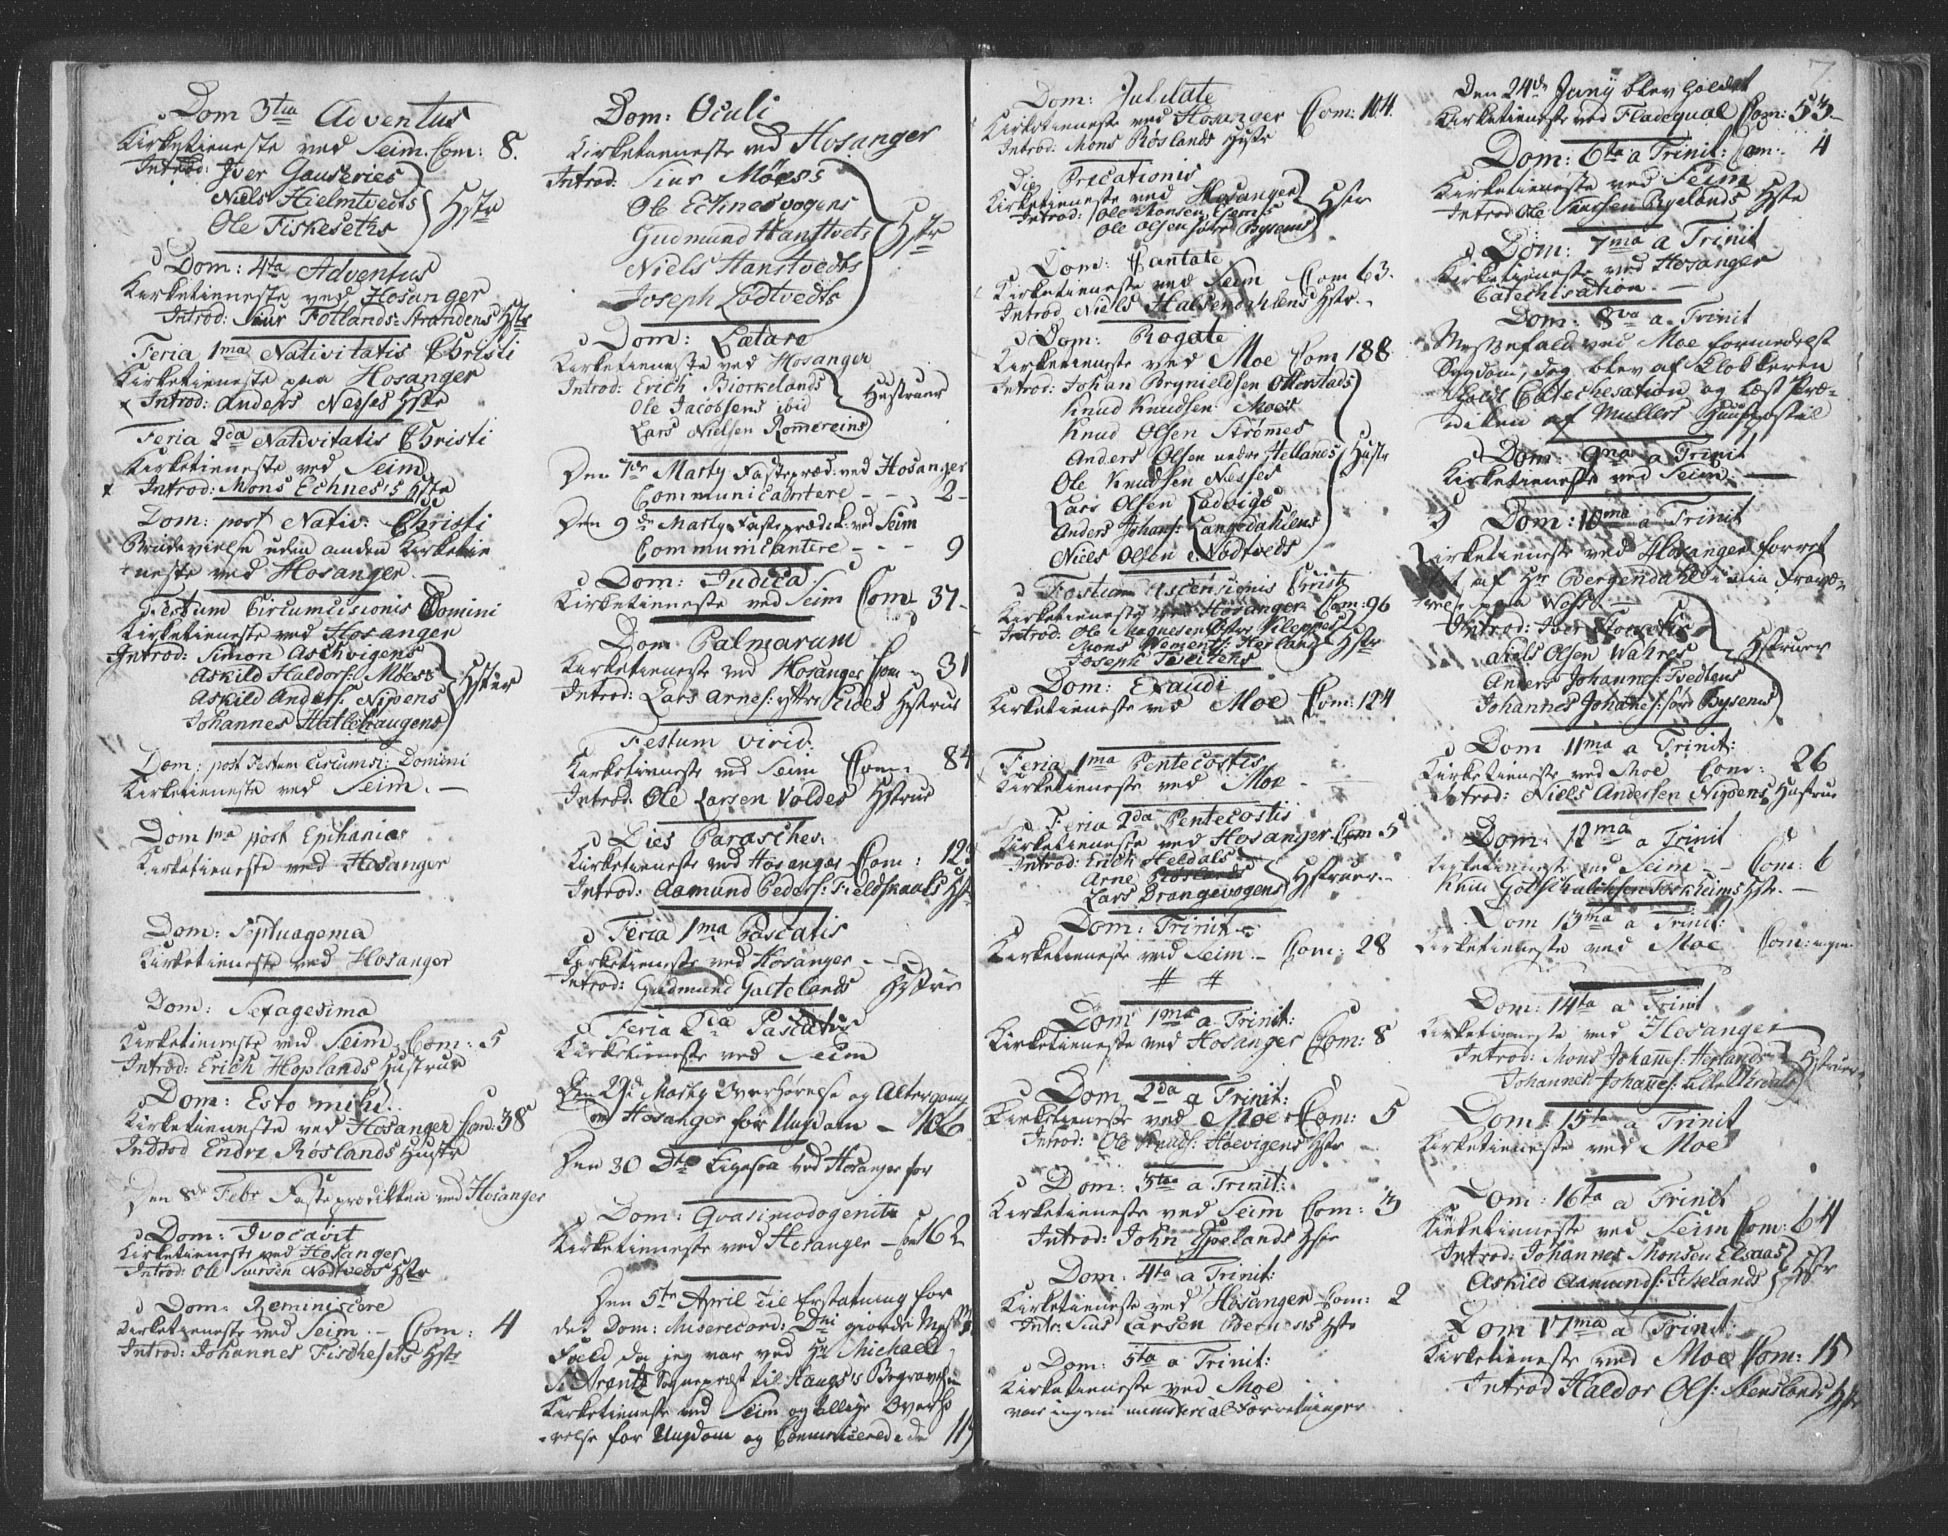 Dom 3tia Adventus
Kirketieneste ved Seim. Com: 8.
Introd: Iver Gauseries
Niels Hielmtvedts
Ole Fiskeseths
Hstr
Dom: 4ta Adventus
Kirketieneste ved Hosanger
Introd: Siur Fotlands-Strandens Hstr
Feria 1ma Nativitatis Christi
Kirketieneste paa Hosanger
Introd: Anders Nesses Hstr
Feria 2da Nativitatis Christi
Kirketieneste ved Seim
Introd: Mons Echnes's Hstr
Dom: post Nativ: Christi
Brudevielse uden anden Kirketie
neste ved Hosanger.
Festum Circumcisionis Domini
Kirketieneste ved Hosanger
Introd: Simon Aschvigens
Askild Haldors: Möess
Askild Anders: Nipens
Johannes Hatlehaugens
Hstr
Dom: post Festum Circumsi: Domini
Kirketieneste ved Seim.
Dom 1ma post Epihanias
Kirketieneste ved Hosanger
Dom: Septuagema
Kirketieneste ved Hosanger
Dom: Sexagesima
Kirketieneste ved Seim. Com: 5
Introd: Erich Hoplands Hustrue
Dom: Esto mihi.
Kirketieneste ved Hosanger Com: 38
Introd Endre Röslands Hustr
Den 8de Febr Fasteprædikken ved Hosanger
Dom: Invocavit
Kirketieneste ved Hosanger
Introd: Ole Siursen Nödtveds Hstr
Dom: Reminiscere
Kirketieneste ved Seim. Com: 4
Introd: Johannes Fischesets Hstr
Dom: Oculi
Kirketieneste ved Hosanger
Introd: Siur Möess
Ole Echnesvogens
Gudmund Hanstvets
Niels Hanstvedts
Joseph Lödtvedts
Hstr
Dom: Lætare
Kirketieneste ved Hosanger
Introd: Erich Biörkelands
Ole Jacobsens ibid
Lars Nielsen Rommereins
Hustruer
Den 7de Marty Fastepræd: ved Hosanger
Communicantere - - 2
Den 9de Marty Fasteprædek: ved Seim
Communicantere - - - 9
Dom: Judica.
Kirketieneste ved Seim Com 37
Dom Palmarum
Kirketieneste ved Hosanger Com 31
Introd: Lars Arnes: yttre Eides Hstrue
Festum Virid:
Kirketieneste ved Seim Com: 84
Introd. Ole Larsen Voldes Hstrue
Dies Parasches
Kirketieneste ved Hosanger Com: 129
Introd: Aamund Peders: Fieldsnaals Hstr
Feria 1ma Pascatis
Kirketieneste ved Hosanger
Introd: Gudmund Galtelands Hstrue
Feria 2da Pascatis
Kirketieneste ved Seim
Den 29de Marty Overhörelse og Altergang
ved Hosanger for Ungdom - 106
Den 30 Dto Ligesaa ved Hosanger for
Dom: Qvasimodogeniti
Kirketieneste ved Hosanger - Com 162
Den 5te April til Erstatning for
det Dom: Misericord: Dni giorde Mess
Fald, da jeg var ved Hr Michael
Arentz Sognepræst til Haugs's Begravelse
Kirketieneste ved Seim og tillige Overhö
relse for Ungdom og Communicerede da 119
Dom: Jubilate
Kirketieneste ved Hosanger Com: 104.
Introd: Mons Röslands Hustr
Die Precationis
Kirketieneste ved Hosanger
Introd: Ole Monsen Elsaas
Ole Olsen söre Bysems
Hstr
Dom: Cantate
Kirketieneste ved Seim Com 63.
Introd Niels Halsendahlens Hstr.
Dom: Rogate
Kirketieneste ved Moe Com 188
Introd: Johan Brynieldsen Otterstads
Knud Knudsen Moes
Knud Olsen Strömes
Anders Olsen nedre Hellands
Ole Knudsen Nesses
Lars Olsen Ladvigs
Anders Johans: Langedahlens
Niels Olsen Nodtveds
Hustr
Festum Ascensionis Christi
Kirketieneste ved Hosanger Com: 96
Introd: Ole Magnesen Östre Kleppe
Mons Clements: Herland
Joseph Tveitens
Hstr
Dom: Exaudi
Kirketieneste ved Moe Com: 124
Feria 1ma Pentecostis
Kirketieneste ved Moe
Feria 2da Pentecostis
Kirketieneste ved Hosanger. Com 5
Introd: Erich Heldals
Arne Röslands
Lars Drangevogens
Hstruer.
Dom: Trinit
Kirketieneste ved Seim. Com: 28
# #
Dom 1ma a Trinit:
Kirketieneste ved Hosanger Com: 8
Dom 2da a Trinit:
Kirketieneste ved Moe Com: 5
Introd: Ole Knuds: Hoevigens Hstr
Dom: 3tia a Trinit:
Kirketieneste ved Seim Com: 3
Introd: John Hpelands Hstr
Dom: 4ta a Trinit:
Kirketieneste ved Hosanger Com: 2
Intr: Siur Larsen Bernes's Hstr
Dom: 5ta a Trinit:
Kirketieneste ved Moe
var ingen ministerial Forretninger
7
Den 24de Juny blev holdet
Kirketieneste ved Fladeqval Com: 53
Dom: 6ta a Trinit: Com: 4
Kirketieneste ved Seim
Introd Ole Siursen Ryelands Hstr
Dom: 7ma a Trinit
Kirketieneste ved Hosanger
Catechisation.
Dom: 8va a Trinit
Messefald ved Moe formedelst
Sygdom, dog blev af Klokkeren
holdt Catechesation og læst Præ-
diken af Mullers Huuspostil
Dom: 9na a Trinit
Kirketieneste ved Seim.
Dom: 10ma a Trinit
Kirketieneste ved Hosanger forret
tet af Hr Bergendahl i min Fravæ-
relse paa Voss.
Introd: Iver
Niels Olsen Wahres
Anders Johannes: Tvedtens
Johannes Johanes: söre Bysems
Hstruer
Dom 11ma a Trinit:
Kirketieneste ved Moe Com: 26
Introd: Niels Andersen Nipens Hustrue
Dom: 12ma a Trinit
Kirketieneste ved Seim - Com: 6
Knud Gotschalchsen Hstr.
Dom 13ma a Trinit:
Kirketieneste ved Moe Com: ingen
Dom: 14ta a Trinit
Kirketieneste ved Hosanger
Introd: Mons Johanes: Herlands
Johannes Johanes: Lille
Hstruer
Dom: 15ta a Trinit
Kirketieneste ved Moe
Dom: 16ta a Trinit
Kirketieneste ved Seim Com: 64
Introd: Johannes Monsen Elsaas
Askild Aamunds: Iselands
Hstr
Dom 17ma a Trinit:
Kirketieneste ved Moe Com: 15
Introd Haldor Ols: Stenslands Hstr